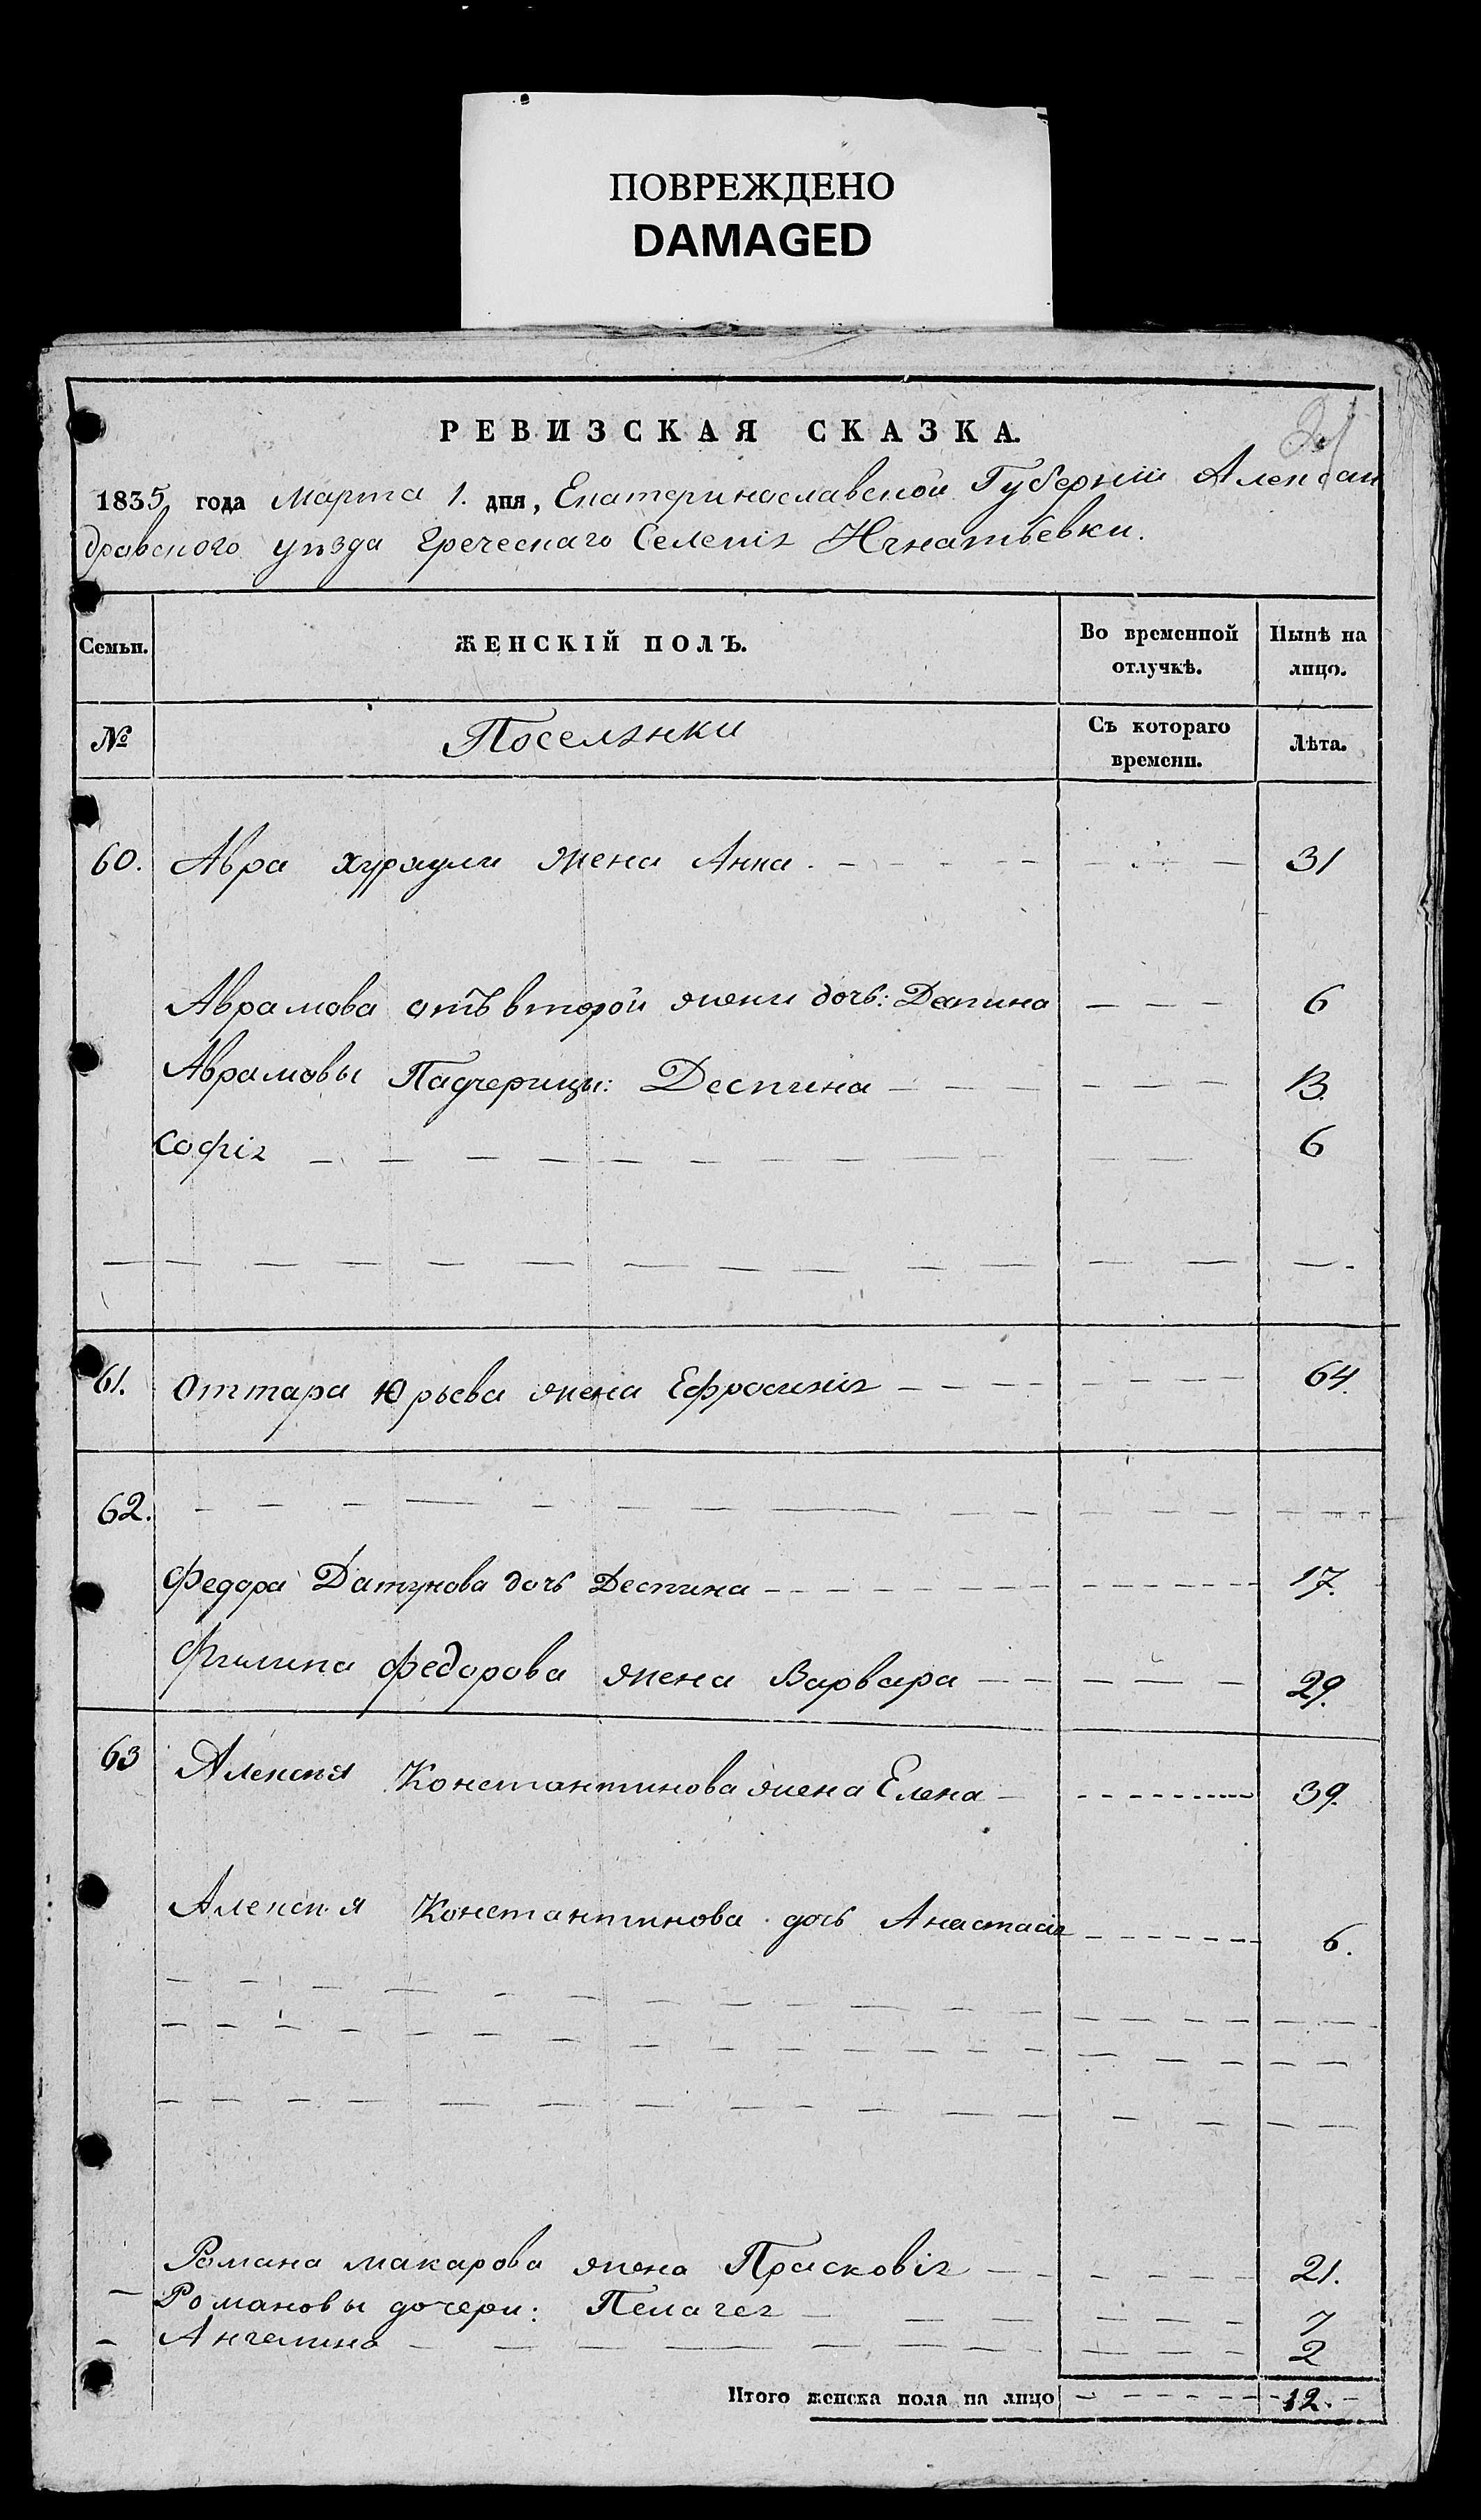 ПОВРЕЖДЕНО
DAMAGED
РЕВИЗСКАЯ СКАЗКА.
1835 года Марта 1. дня, Екатеринославской Губерніи Алексан
дровского уѣзда Греческаго Селенія Игнатьевки.
Семьи. ЖЕНСКІЙ ПОЛЪ. Во временной отлучкѣ. Нынѣ на лицо.
№ Поселянки Съ котораго времени. Лѣта.
60. Авра жена Анна. 31
Аврамова отъ второй жены дочь: Деспина 6
Аврамовы Падчерицы: Деспина 13.
Софія 6
61. Оттара Юрьева жена Ефросинія 64.
62.
Федора Датунова дочь Деспина 17.
Филипа Федорова жена Варвара 29.
63 Алексѣя Константинова жена Елена 39.
Алексѣя Константинова дочь Анастасія 6.
Романа Макарова жена Прасковія 21.
Романовы дочери: Пелагея 7
Ангелина 2
Итого женска пола на лицо 12.